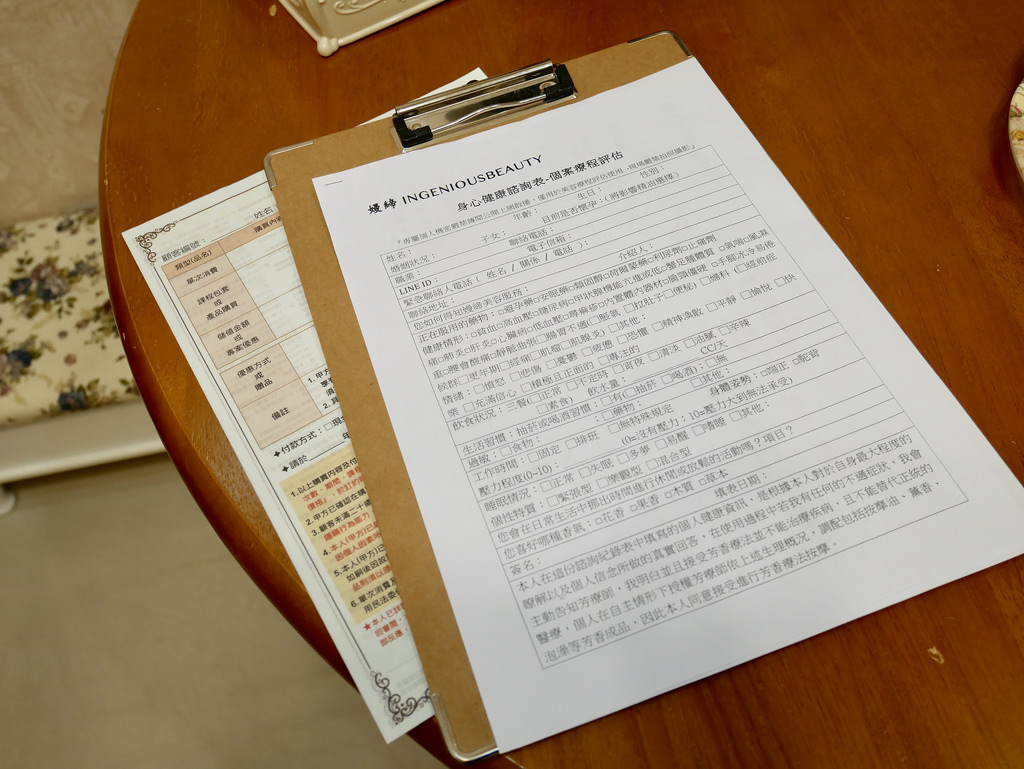 嫚締 INGENIOUSBEAUTY
身心健康諮詢表-個案療程評估
姓名： 年齡： 生日： 性別：
婚姻狀況： 子女： 目前是否懷孕：(將影響精油選擇)
職業： 聯絡電話：
LINE ID： 電子信箱：
緊急聯絡人電話（ 姓名 / 關係 / 電話 ）：
聯絡地址： 介紹人：
您如何得知嫚締美容服務：
正在服用的藥物：□避孕藥□安眠藥□類固醇□荷爾蒙藥□利尿劑□止痛劑
情緒：□憤怒 □悲傷 □憂鬱 □疲憊 □恐懼 □精神渙散 □平靜 □愉悅 □快
樂 □充滿信心 □積極且正面的 □專注的
飲食狀況：三餐(□正常 □不定時 □宵夜 □清淡 □油膩 □辛辣
□素食) 飲水量： CC/天
生活習慣：抽菸或喝酒習慣：□有(□抽菸 □喝酒)：□無
過敏：□食物： □藥物： □其他：
工作時間：□固定 □排班 □無特殊規定 身體姿勢：□端正 □駝背
壓力程度(0~10)： (0=沒有壓力；10=壓力大到無法承受)
睡眠情況：□正常 □失眠 □多夢 □易醒 □嗜睡 □其他：
個性特質：□緊張型 □樂觀型 □混合型
您會在日常生活中挪出時間進行休閒或放鬆的活動嗎？項目？
您喜好哪種香氣：□花香 □果香 □木質 □草本
簽名： 填表日期：
本人在這份諮詢記錄表中填寫的個人健康資訊，是根據本人對於自身最大程度的
瞭解以及個人信念所做的真實回答，在使用過程中若我有任何的不適症狀，我會
主動告知芳療師，我明白並且接受芳香療法並不能治療疾病，且不能替代正統的
醫療，個人在自主情形下授權芳療師依上述生理概況，調配包括按摩油、薰香、
泡澡等芳香成品，因此本人同意接受進行芳香療法按摩。
顧客編號： 姓名
類型(品名) 購買內容
單次消費
課程包套
或
產品購買
儲值金額
或
專案優惠
優惠方式
或
贈品
備註
◆付款方式：□現
◆請於 年
1.以上購買內容及付
2.甲方已確認在購
3.顧客未滿二十歲
4.本人(甲方)已
5.本人(甲方)已
6.單次消費及
用民法委
★本人已詳